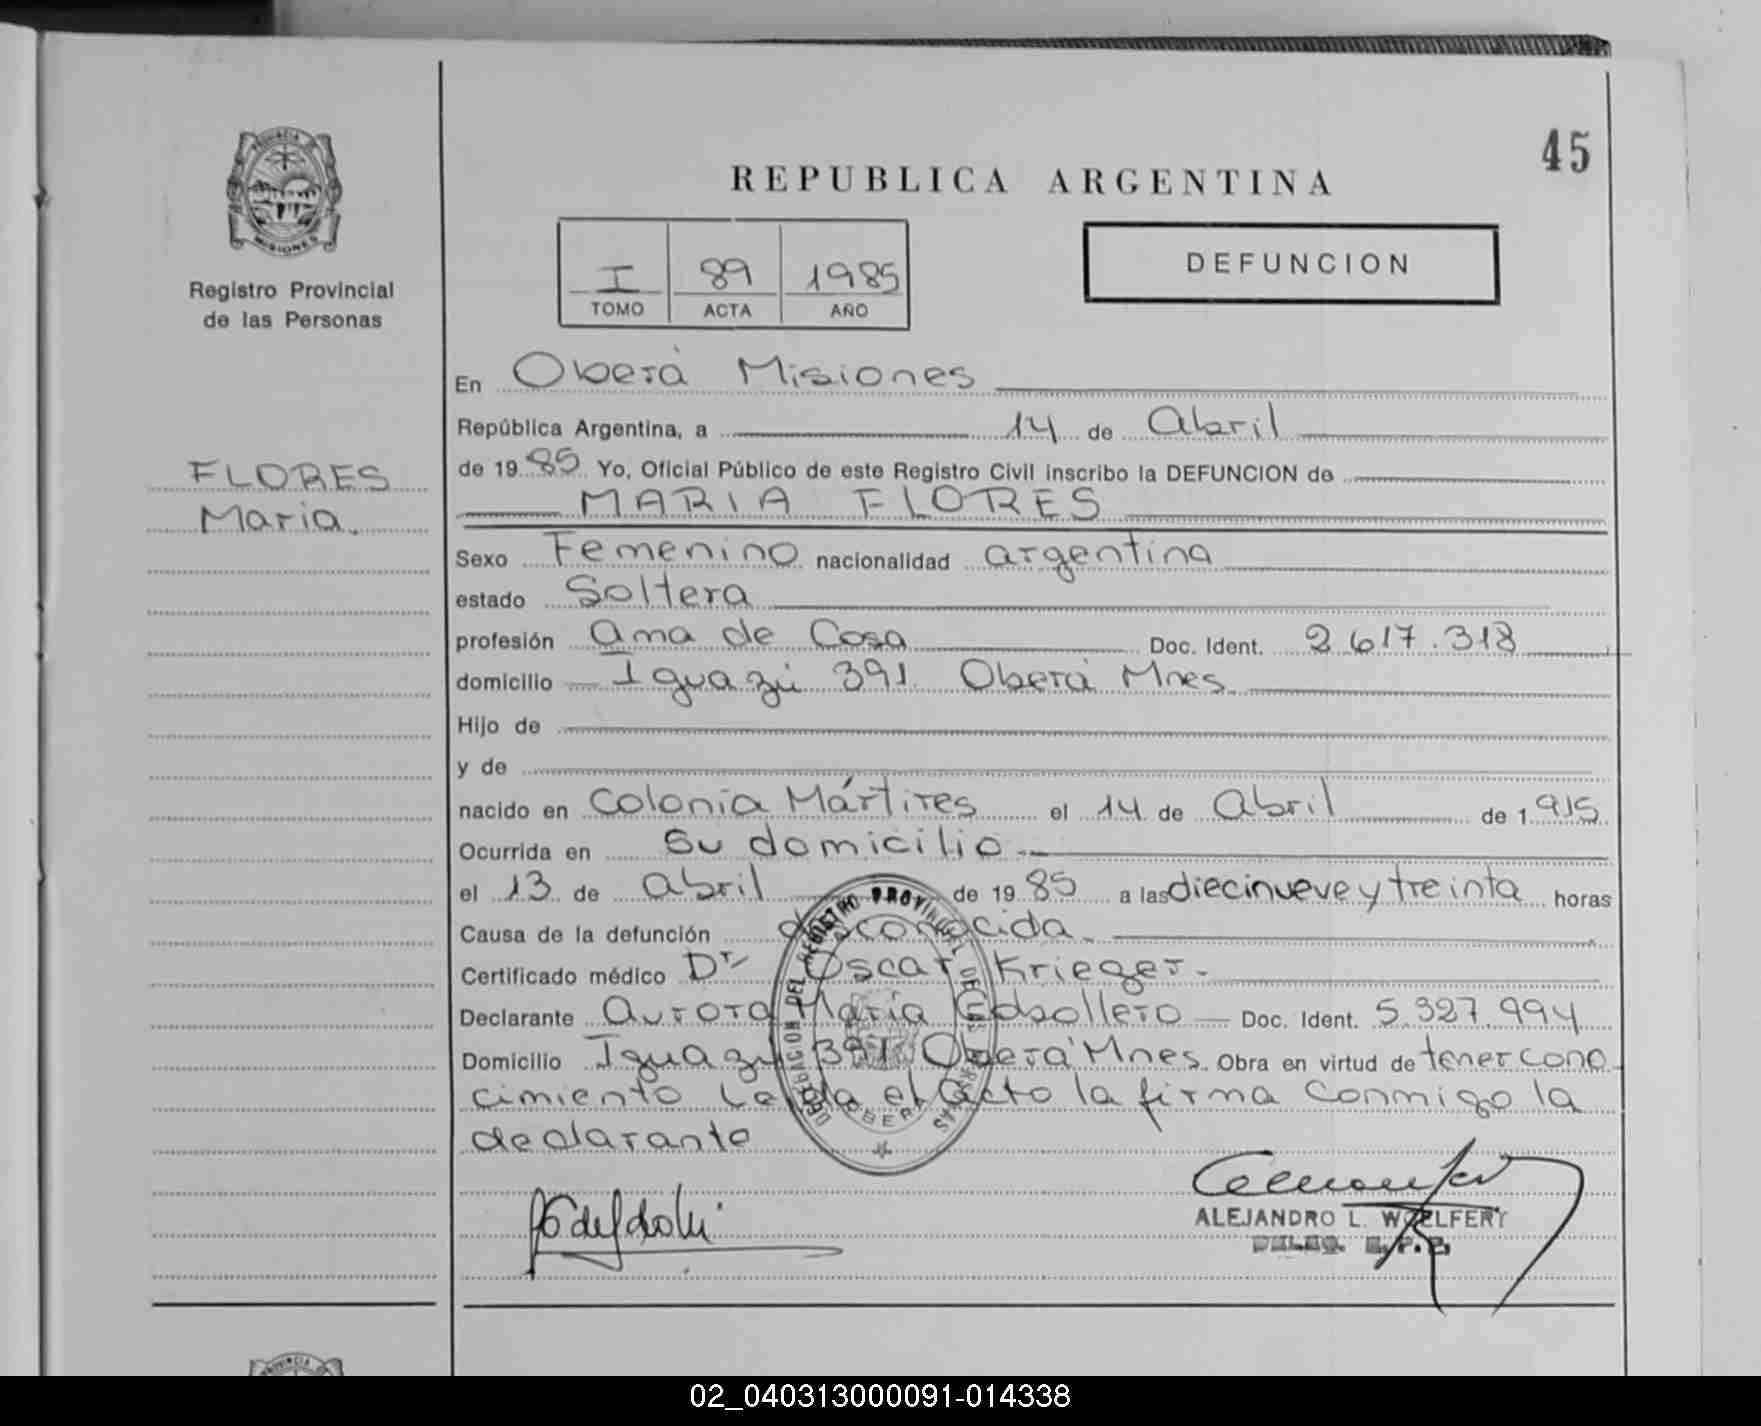 45
REPUBLICA ARGENTINA
PROVINCIA DE
MISIONES
Registro Provincial
de las Personas
I 89 1985
TOMO ACTA AÑO
DEFUNCION
En Oberá Misiones
República Argentina, a 14 de Abril
de 1985 Yo, Oficial Público de este Registro Civil inscribo la DEFUNCION de
FLORES
Maria.
MARIA FLORES
Sexo Femenino nacionalidad argentina
estado Soltera
profesión Ama de Casa Doc. Ident. 2.617.318
domicilio Iguazú 391 Oberá Mnes
Hijo de
y de
nacido en Colonia Mártires el 14 de Abril de 1915
Ocurrida en su domicilio.
el 13 de Abril de 1985 a las diecinueve y treinta horas
Causa de la defunción desconocida
Certificado médico Dr Oscar Krieger.
Declarante Aurora Maria Doc. Ident. 5.327.994
Domicilio Iguazú 391 Oberá Mnes. Obra en virtud de tener cono
cimiento Leida el Acto la firma conmigo la
declarante
DELEGACION DEL REGISTRO PROVINCIAL DE LAS PERSONAS
OBERA
ALEJANDRO L. WOELFERT
DELEG. R.P.P.
02_040313000091-014338